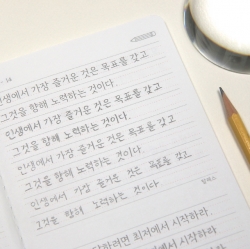 인생에서 가장 즐거운 것은 목표를 갖고
그것을 향해 노력하는 것이다.
인생에서 가장 즐거운 것은 목표를 갖고
그것을 향해 노력하는 것이다.
인생에서 가장 즐거운 것은 목표를 갖고
그것을 향해 노력하는 것이다.
인생에서 가장 즐거운 것은 목표를 갖고
그것을 향해 노력하는 것이다
탈레스
최저에서 시작하라.